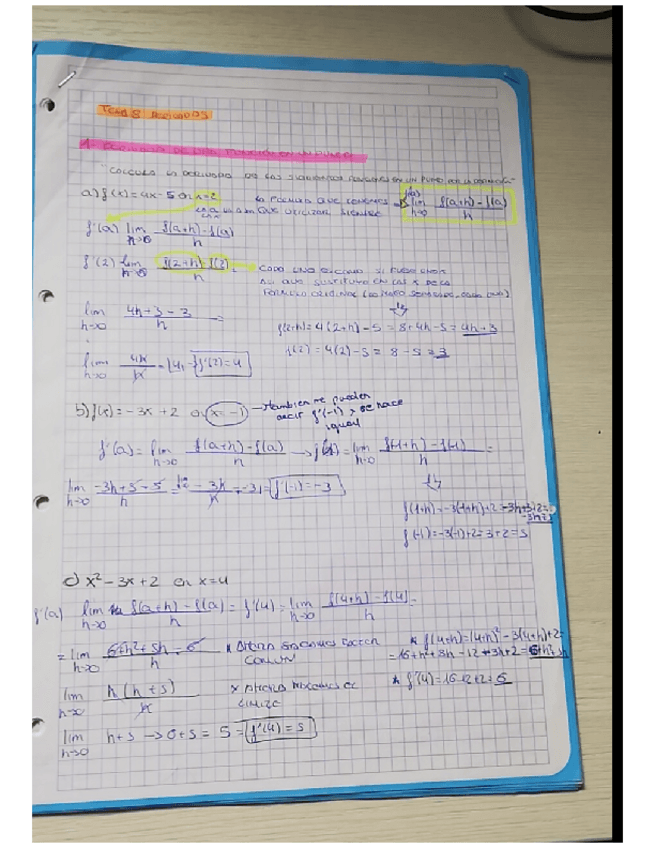 TEMA 8 DERIVADAS
1- DERIVADA DE UNA FUNCIÓN EN UN PUNTO
CALCULA LA DERIVADA DE LAS SIGUIENTES FUNCIONES EN UN PUNTO CON LA
a) f(x) = 4x - 5 en x=2
LA FORMULA QUE
QUE UTILIZAR SIEMPRE
lim h→0 f(a+h) - f(a) / h
f'(a) lim h→0 f(a+h) - f(a) / h
f'(2) lim h→0 f(2+h) - f(2) / h
CADA UNO
ASI QUE SUSTITUYO EN LAS X DE LA
FORMULA ORIGINAL
lim h→0 4h+3-3 / h =
f(2+h) = 4(2+h) - 5 = 8+4h-5 = 4h+3
f(2) = 4(2) - 5 = 8 - 5 = 3
lim h→0 4h / h = 4 f'(2) = 4
b) f(x) = -3x + 2 en x = -1
→ tambien me pueden
decir f'(-1) y se hace
igual
f'(a) = lim h→0 f(a+h) - f(a) / h → lim h→0 f(-1+h) - f(-1) / h =
lim h→0 -3h+5-5 / h = -3h / h = -3 = f'(-1) = -3
f(-1+h) = -3(-1+h)+2 = -3h+3+2 =
-3h+5
f(-1) = -3(-1)+2 = 3+2 = 5
c) x² - 3x + 2 en x = 4
f'(a) lim h→0 f(a+h) - f(a) / h = f'(4) = lim h→0 f(4+h) - f(4) / h =
= lim h→0 6+h²+5h-6 / h
* AHORA SACAMOS FACTOR
COMUN
* f(4+h) = (4+h)² - 3(4+h)+2 =
= 16+h²+8h-12-3h+2 = 6+h²+5h
lim h→0 h(h+5) / h
* AHORA HACEMOS EL
LIMITE
* f(4) = 16-12+2 = 6
lim h→0 h+5 → 0+5 = 5 = f'(4) = 5